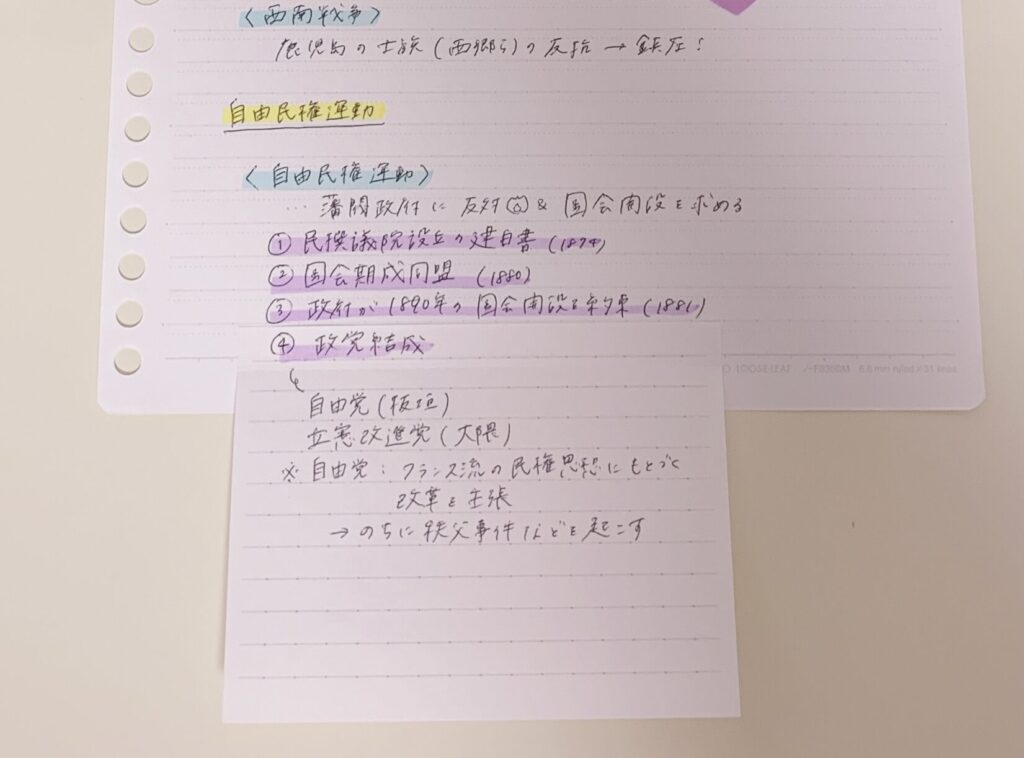 〈西南戦争〉
鹿児島の士族(西郷ら)の反抗→鎮圧!
自由民権運動
〈自由民権運動〉
… 藩閥政府に反対 & 国会開設を求める
① 民撰議院設立の建白書(1874)
② 国会期成同盟 (1880)
③ 政府が1890年の国会開設を約束(1881)
④ 政党結成
LOOSE-LEAF ノ-F836BM 6.8 mm ruled×31 lines
自由党(板垣)
立憲改進党(大隈)
※自由党:フランス流の民権思想にもとづく
改革を主張
→のちに秩父事件などを起こす